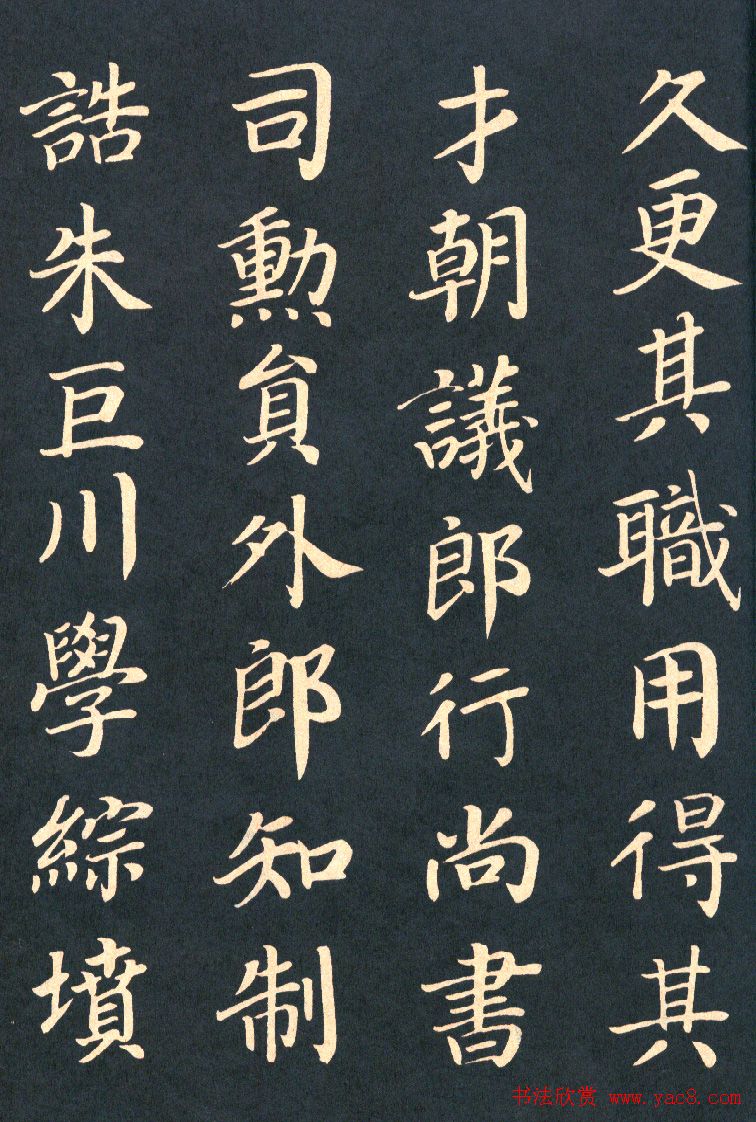 久更其職用得其
才朝議郎行尚書
司勳貟外郎知制
誥朱巨川學綜墳
书法欣赏 www.yac8.com